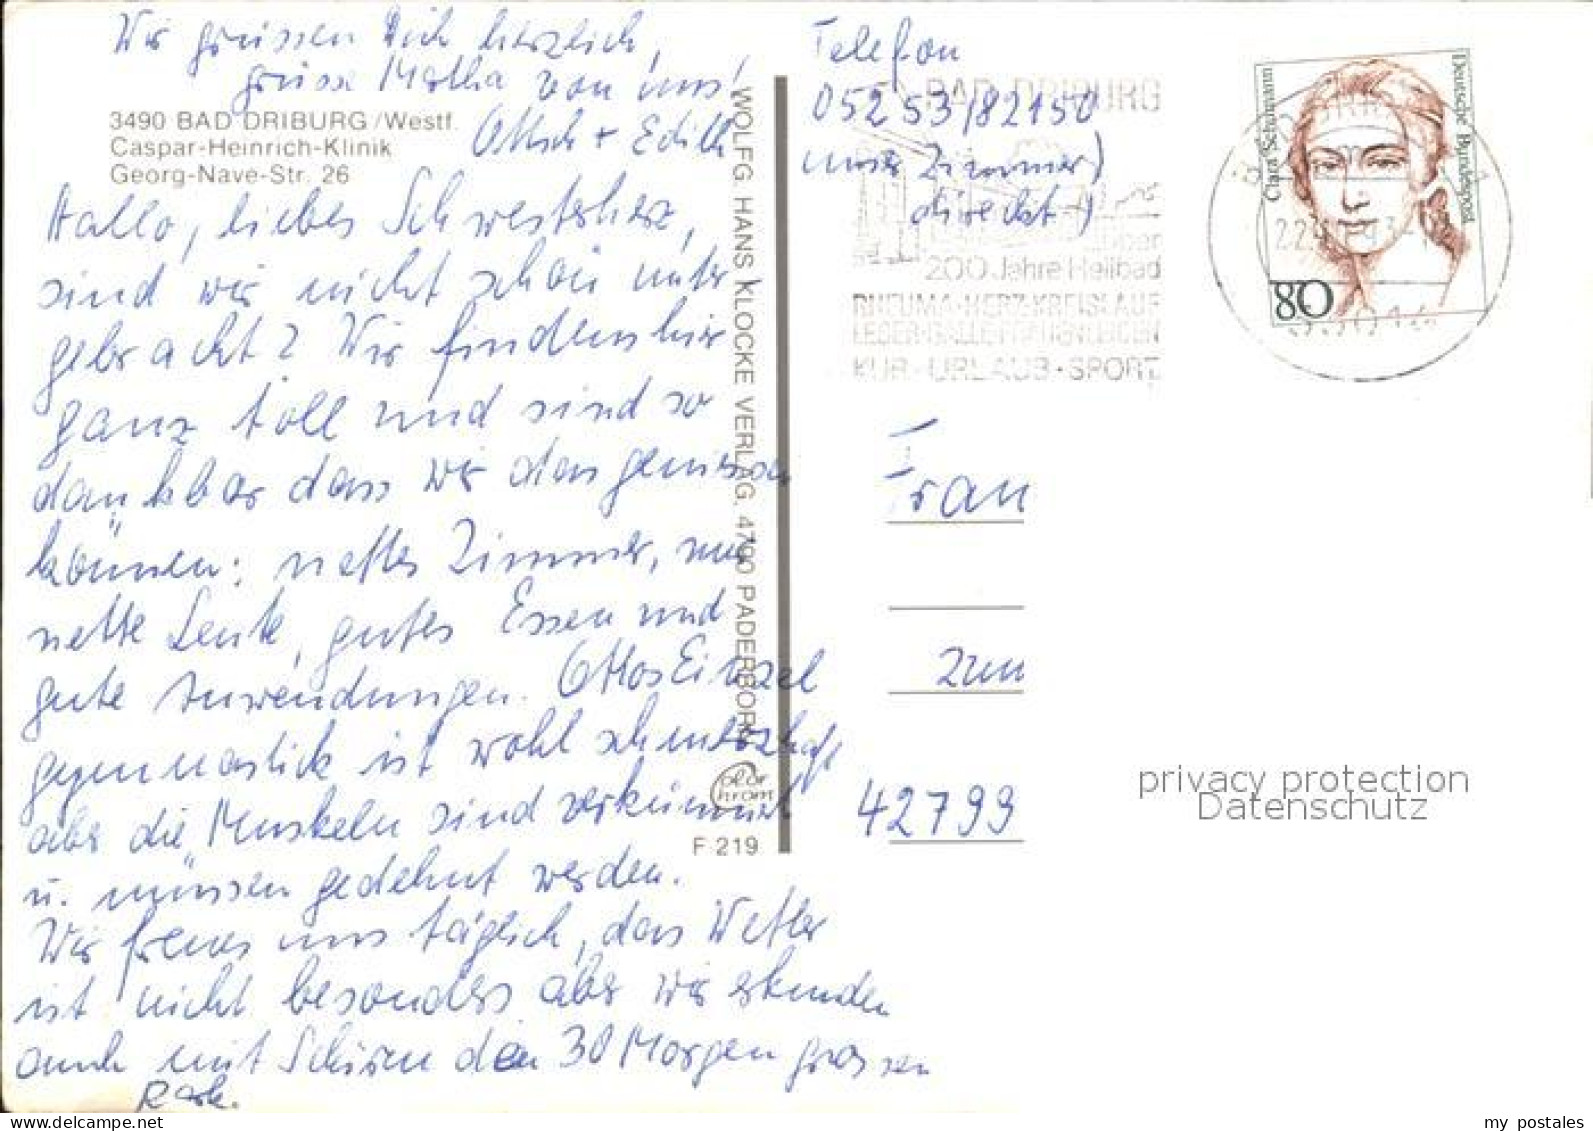 Wir grüssen Dich herzlich,
grüsse Martha von uns,
3490 BAD DRIBURG/Westf.
Caspar-Heinrich-Klinik
Georg-Nave-Str. 26
+ Edith
Hallo, liebes Schwesterherz,
sind wir nicht schön unter
gebracht? Wir finden's hier
ganz toll und sind so
dankbar dass wir das geniessen
können: nettes Zimmer, nur
nette Leute, gutes Essen und
gute Anwendungen. Ottos Einzel
gymnastik ist wohl schmerzhaft
aber die Muskeln sind verkümmert
u. müssen gedehnt werden.
Wir freuen uns täglich, das Wetter
ist nicht besonders aber wir erkunden
auch mit Schirm den 30 Morgen grossen
Park.
WOLFG. HANS KLOCKE VERLAG, 4790 PADERBORN
color
chrom
F 219
Telefon
05253/82150
unser Zimmer)
direkt!)
BAD DRIBURG
über
200 Jahre Heilbad
RHEUMA-HERZ-KREISLAUF
KUR-URLAUB-SPORT
Clara Schumann
Deutsche Bundespost
80
Frau
42799
privacy protection
Datenschutz
my postales